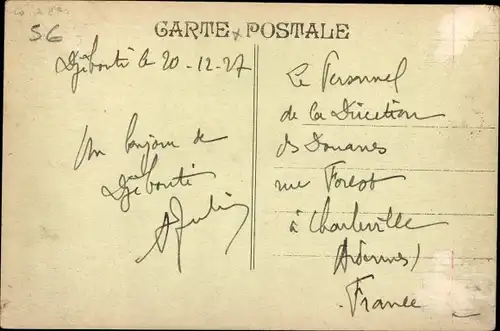 56
CARTE POSTALE
Djibouti le 20-12-27
Un bonjour de
Djibouti
Le Personnel
de la Direction
des Douanes
rue Forest
à Charleville
Ardennes)
France